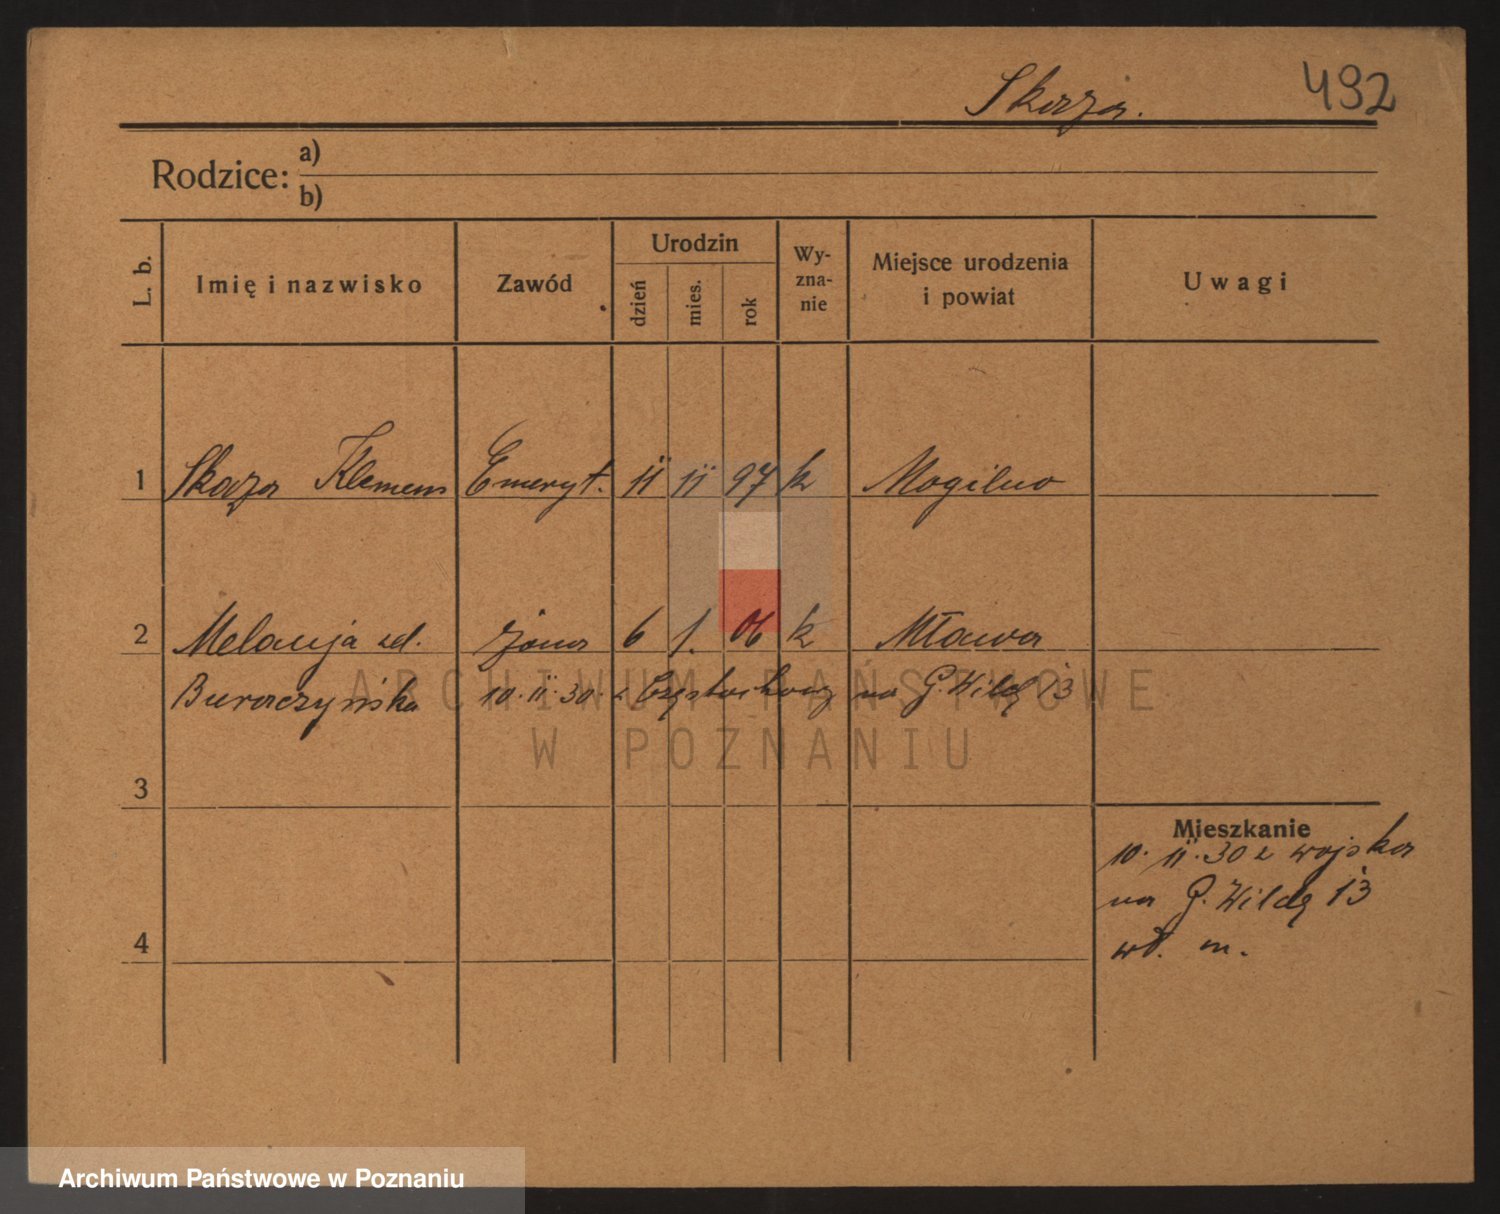 Skaza. 492
Rodzice: a)
b)
L. b. Imię i nazwisko Zawód Urodzin dzień mies. rok Wy-zna-nie Miejsce urodzenia i powiat Uwagi
1 Skaza Klemens Emeryt. 11 11 97 k Mogilno
2 Melanja zd. żona 6 1. 06 k Mława
Buraczyńska 10. 11. 30. z Częstochowy na G. Wildę 13
ARCHIWUM PAŃSTWOWE
W POZNANIU
3
Mieszkanie
10. 11. 30 z wojska
na G. Wildę 13
4
wł. m.
Archiwum Państwowe w Poznaniu